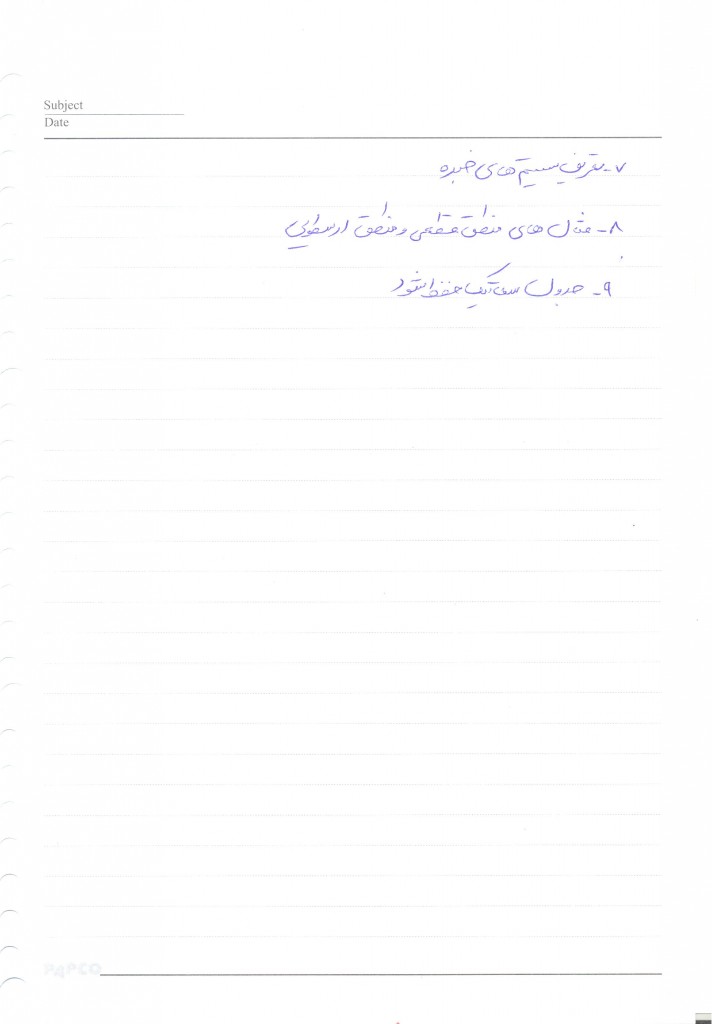 Subject
Date
۷- تعریف سیستم های خبره
۸- مثال های منطق قطعی و منطق ارسطویی
۹- جدول سمانتیک حفظ شود
PAPCO